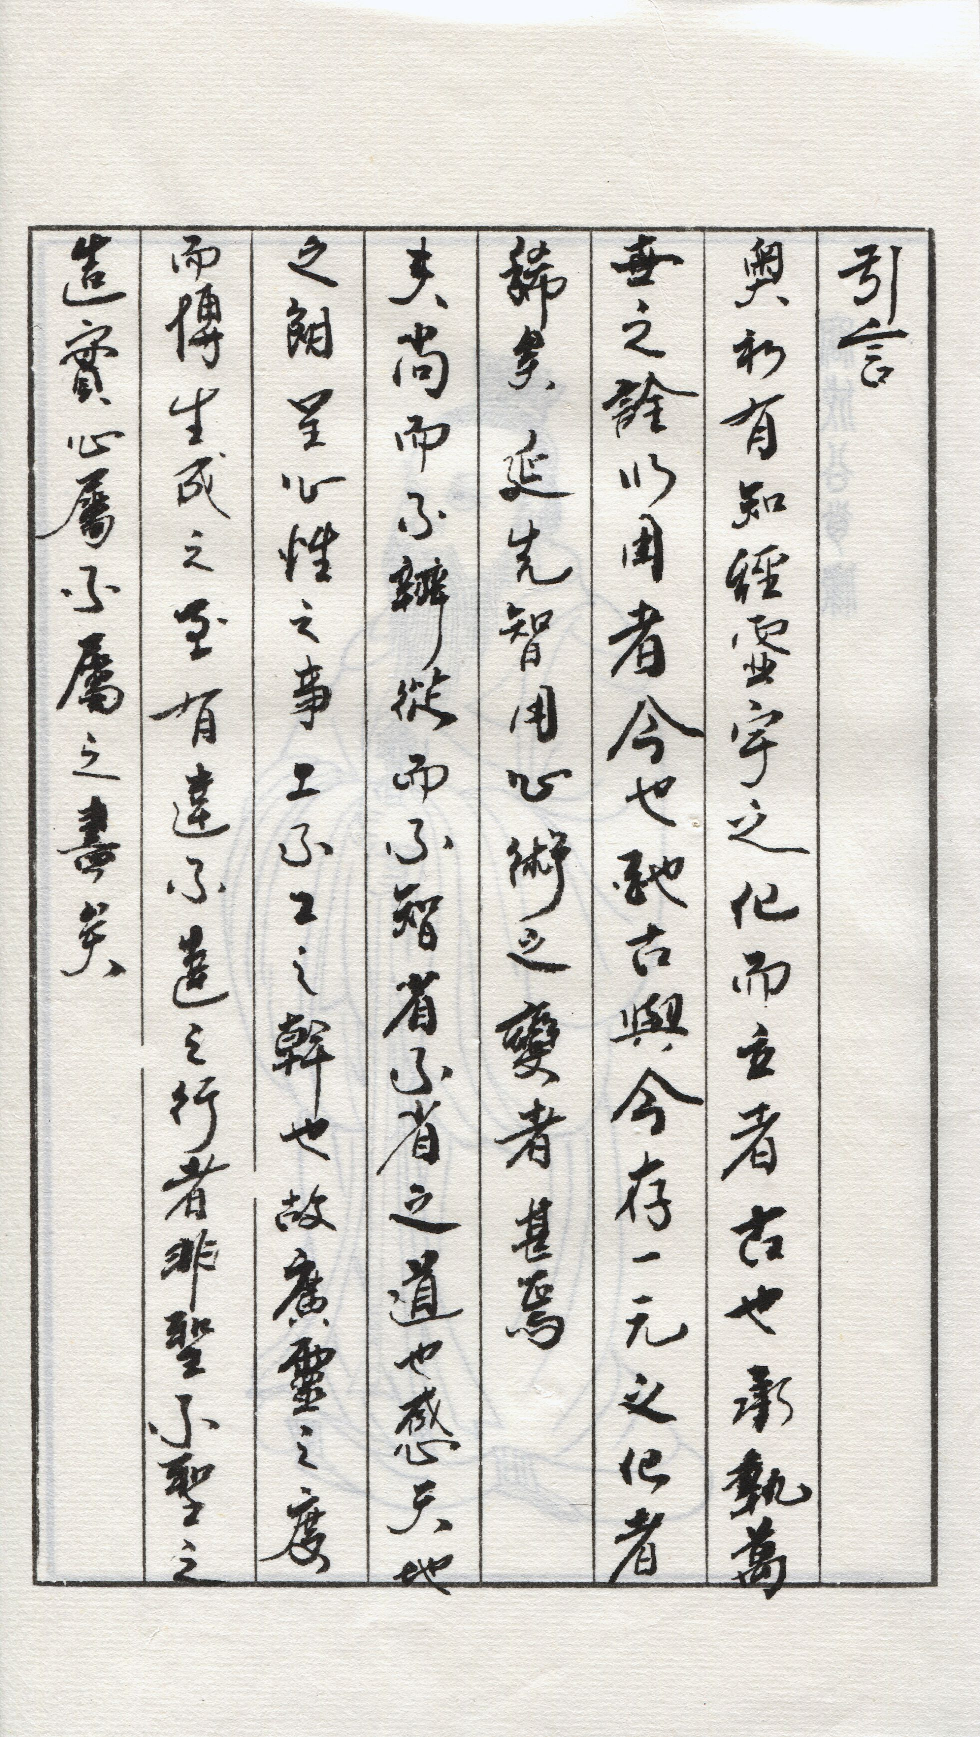 引言
奧初有知經靈宇之化而立者古也承執萬
世之詮以用者今也融古與今存一元之化者
稀矣延先智用心術之變者甚焉
夫尚而不辨從而不智省不省之道也感天地
之朗呈心性之事工不工之幹也故廣靈之度
而博生成之至有違不違之行者非聖不聖之
造實心屬不屬之書矣